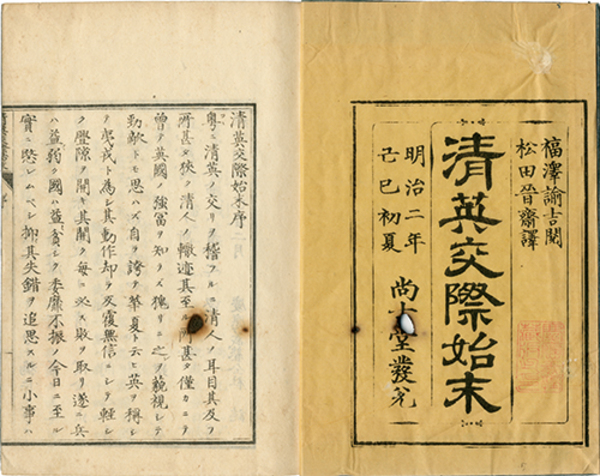 福澤諭吉閲
松田晉齋譯
清英交際始末
明治二年
己巳初夏
尚古堂發兌
清英交際始末序
粤ニ清英ノ交リヲ稽フルニ清人ノ耳目其及フ
所甚タ狹ク清人ノ轍迹其至ル所甚タ僅カニテ
曾テ英國ノ強冨ヲ知ラス猥リニ之ヲ藐視シテ
勁敵トモ思ハス自ラ誇テ華夏ト云ヒ英ヲ稱シ
戎ト為シ其動作却テ反覆無信ニシテ輕シ
ク釁隙ヲ開キ其開ク毎ニ必ス敗ヲ取リ遂ニ兵
ハ益弱ク國ハ益貧シク委靡不振ノ今日ニ至ル
實ニ愍レムベシ抑其失錯ヲ追思スルニ小事ハ